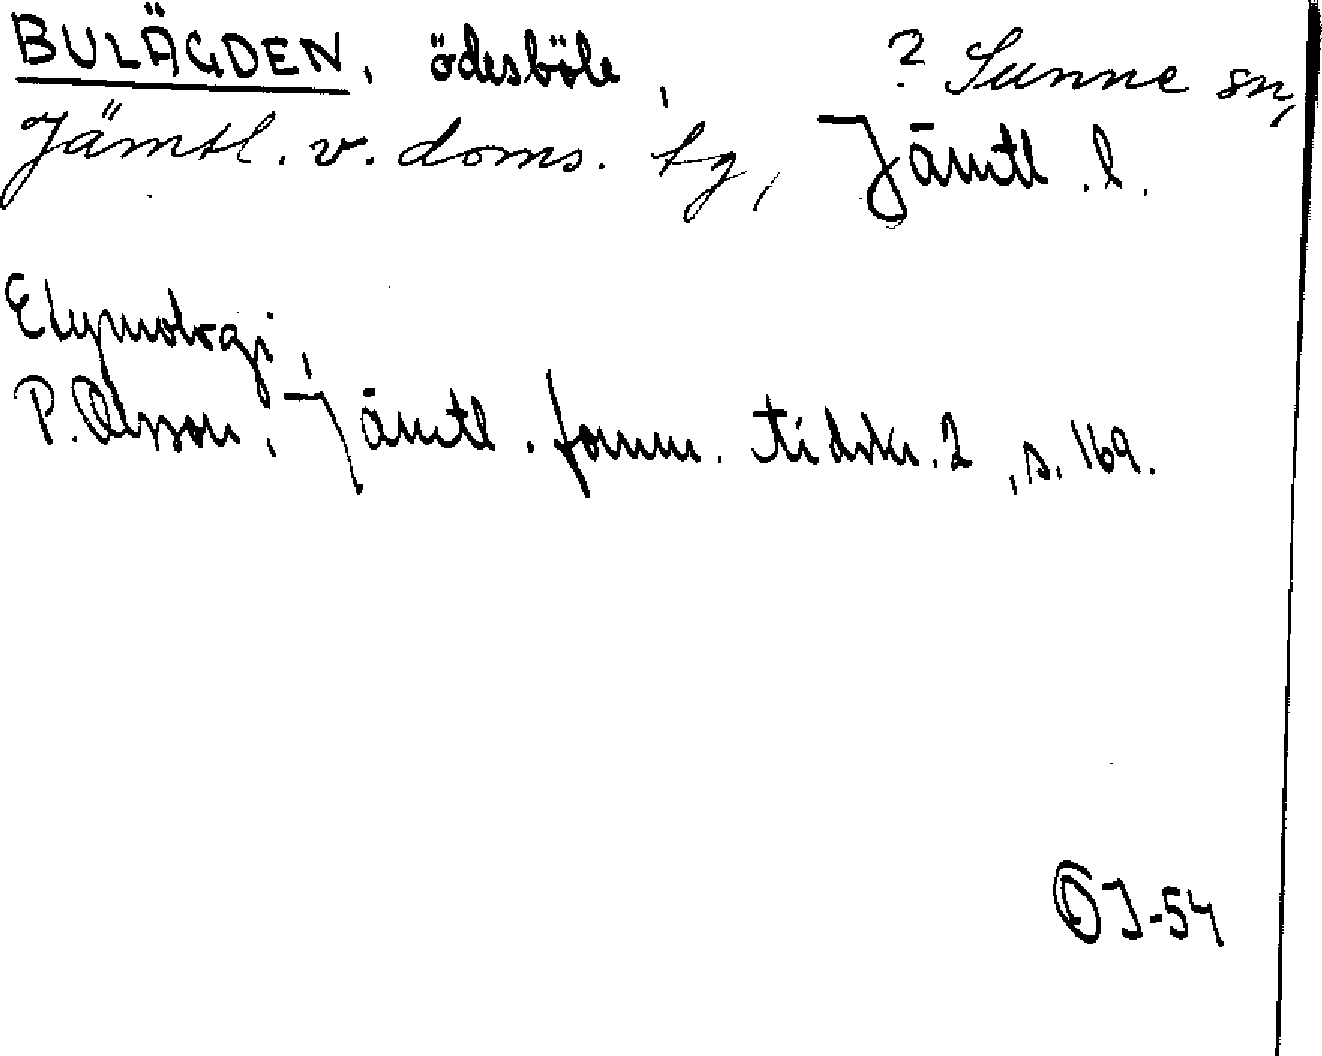 BULÄGDEN, ödesböle, ? Sunne sn,
Jämtl. v. doms. tg, Jämtl. l.
Etymologi,
P. Olsson, Jämtl. fornm. tidskr. 2, s. 169.
OJ-54